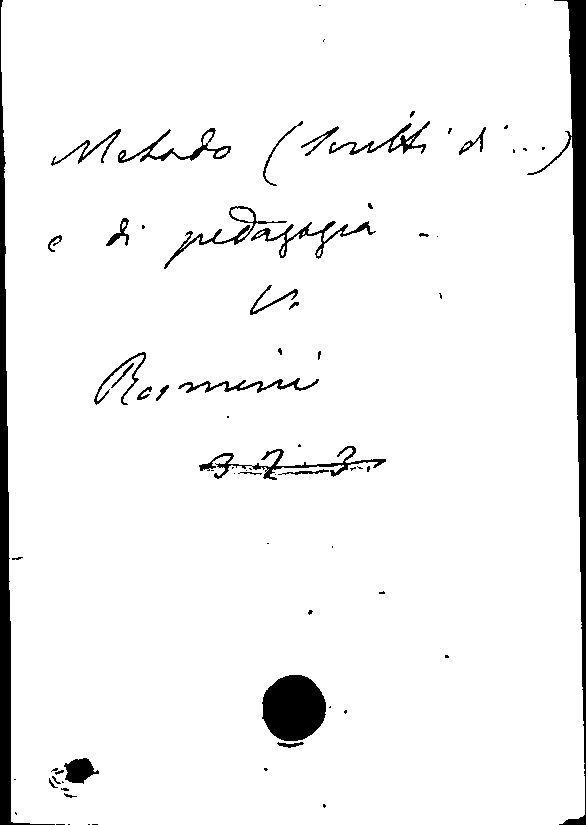 Metodo (Scritti di ...)
e di pedagogia -
V.
Rosmini
3. 2. 3.